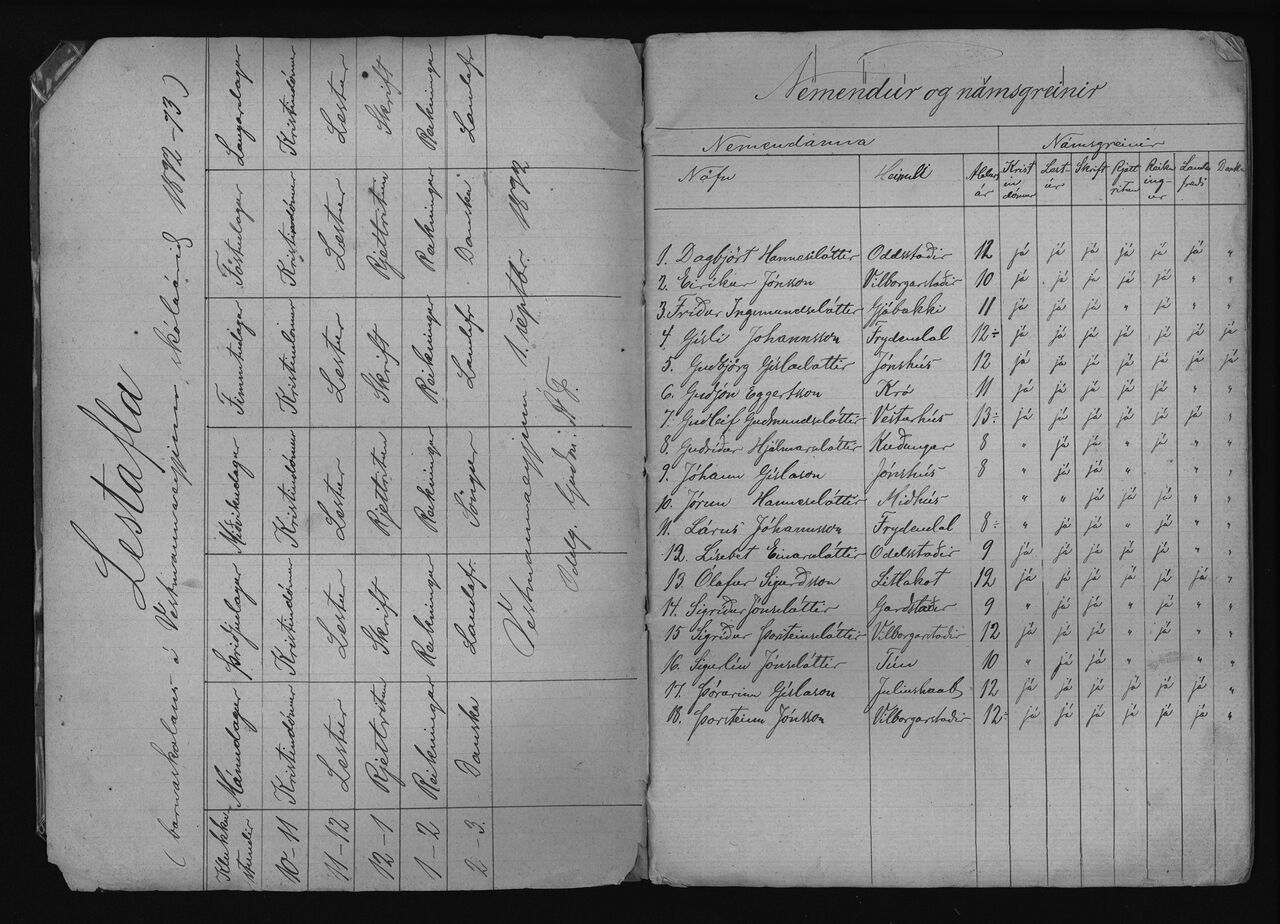 Lestafla
(barnaskólans á Vestmannaeyjum skólaárið 1892-93)
Klukku stundir Mánudagur Þriðjudagur Miðvikudagur Fimmtudagur Föstudagur Laugardagur
10-11 Kristindómur Kristindómur Kristindómur Kristindómur Kristindómur Kristindómur
11-12 Lestur Lestur Lestur Lestur Lestur Lestur
12-1 Rjettritun Skrift Rjettritun Skrift Rjettritun Skrift
1-2 Reikningur Reikningur Reikningur Reikningur Reikningur Reikningur
2-3. Danska Landafr. Söngur Landafr Danska Landafr
Vestmannaeyjum 1. septbr. 1892
Oddg. Guðm.
Nemendur og námsgreinir
Nemendanna Námsgreinir
Nöfn Heimili Aldurs ár Krist in dómur Lest ur Skrift Rjett ritun Reikn ing ur Landa fræði Danska
1. Dagbjört Hannesdóttir Oddsstaðir 12 já já já já já já "
2. Eiríkur Jónsson Vilborgarstaðir 10 já já já já já " "
3. Fríður Ingimundsdóttir Gjábakki 11 já já já " já já "
4. Gísli Johannsson Frydendal 12÷ já já já já já já já
5. Guðbjörg Gísladóttir Jónshús 12 já já já já já já já
6. Guðjón Eggertsson Kró 11 já já já já já " "
7. Guðleif Guðmundsdóttir Vesturhús 13÷ já já já já já já "
8. Guðríður Hjálmarsdóttir Kuðungur 8 " já já " já " "
9. Jóhann Gíslason Jónshús 8 " já já " " "
10. Jórun Hannesdóttir Miðhús " " já já já " "
11. Lárus Jóhannsson Frydendal 8÷ " já já " já " "
12. Lísebet Einarsdóttir Oddsstaðir 9 já já já já já " "
13. Ólafur Sigurðsson Litlakot 12 já já já já já já "
14. Sigríður Jónsdóttir Garðstaðir 9 " já já " já " "
15 Sigríður Þorsteinsdóttir Vilborgarstaðir 12 já já já " já " "
16. Sigurlín Jónsdóttir Tún 10 " já já " " "
17. Þórarinn Gíslason Juliushaab 12 já já já já já já "
18. Þorsteinn Jónsson Vilborgarstaðir 12÷ já já já já já já "